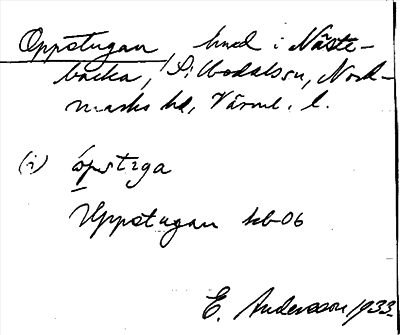 Oppstugan, hmd i Näste-
backa, Silbodals sn, Nord-
marks hd, Värml. l.
(i) òpstɛga
Uppstugan hb 06
E. Andersson 1933.